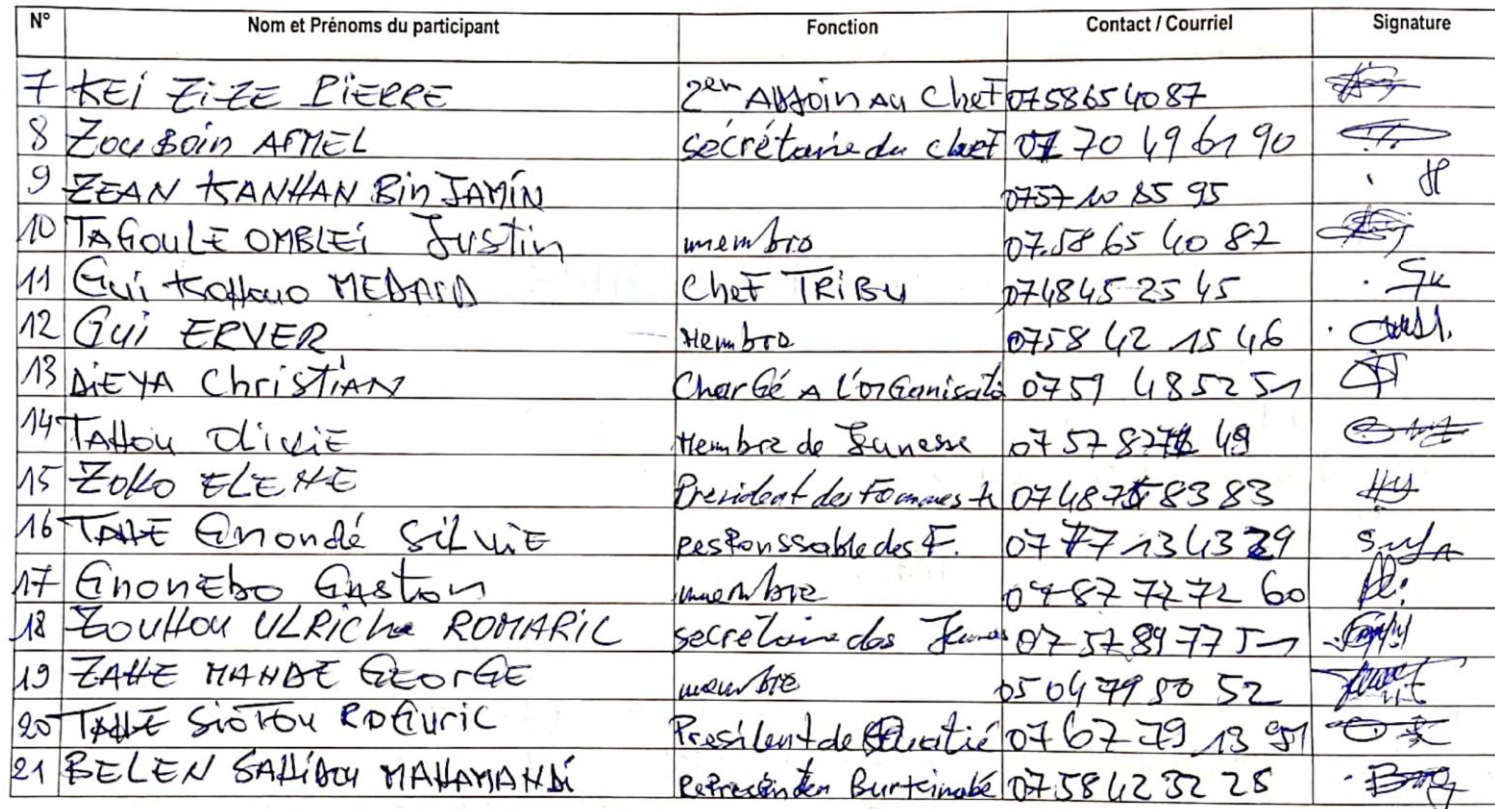 N° Nom et Prénoms du participant Fonction Contact / Courriel Signature
7 KEI ZiZE PiERRE 2en Adjoin Au Chef 0758654087
8 Zou Boin ARMEL secrétaire du chef 07 70 49 61 90
9 ZEAN KANHAN BinJAMiN 0757 10 85 95
10 TAGOULE OMBLEi Justin membro 07.58 65 40 87
11 Gui MEDARD Chef TRiBu 074845 25 45
12 Gui ERVER Membro 0758 42 15 46
13 DiEYA ChrisTiAN CharGé A L'orGanisatio 0759 485251
14 TAHou OLiViE Membre de Jeunesse 07 57 49
15 ZOKO ELENE President des Fommes 0748 83 83
16 TAHE Gnondé SiLViE ResPonssable des F. 07 77 13 43 29
17 GnonEbo Gaston membre 07 87 77 72 60
18 ZOUHOU ULRiche ROMARiC secretaire des Jeunes 07 57 89 77 51
19 ZAHE MANDE GEOrGE membre 05 04 79 50 52
20 TAHE SioTou RoGuric Presilent de Quatié 07 67 79 13 91
21 BELEN SAHiDou MAHAMANDi Represenden Burkinabé 07 58 42 32 28